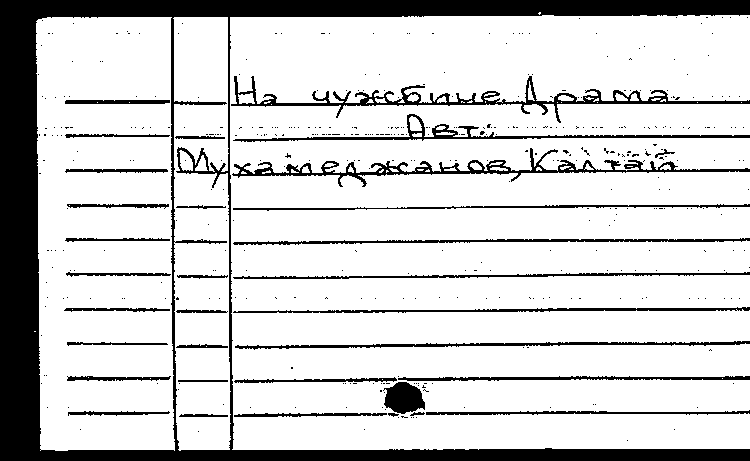 На чужбине. Драма.
Авт.:
Мухамеджанов, Калтай